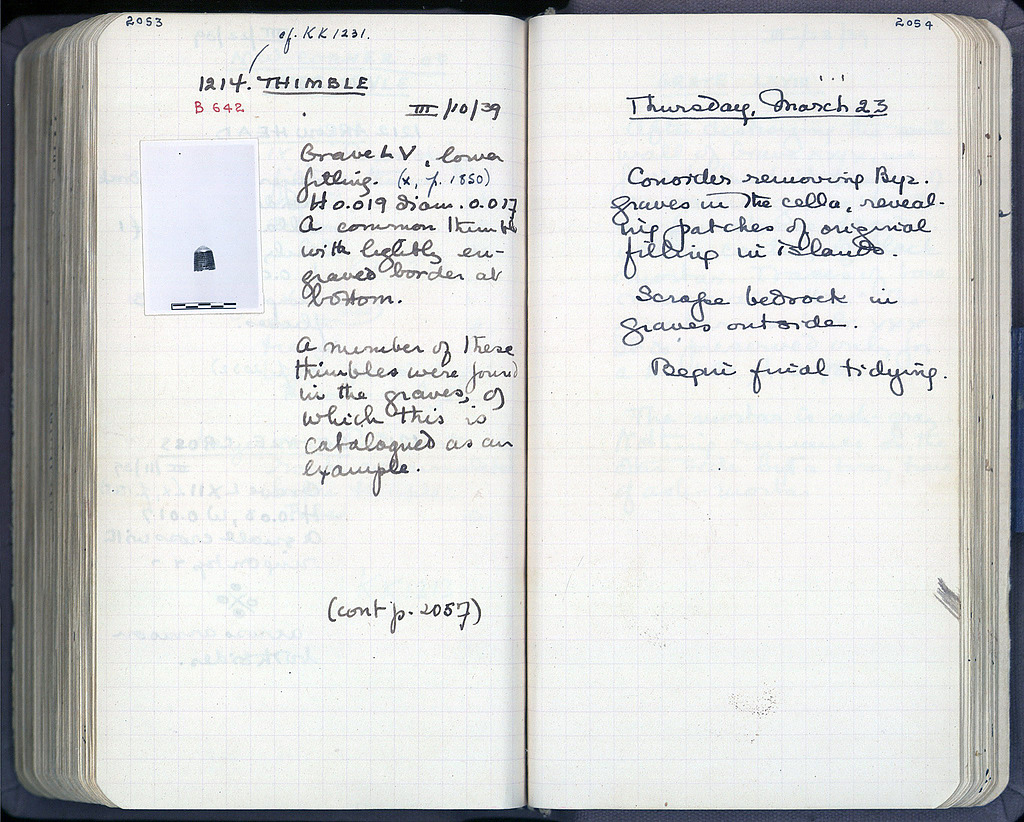 2053
cf. KK 1231.
1214. THIMBLE
B 642
III/10/39
Grave LV, lower
filling. (x, p. 1850)
H 0.019 diam. 0.017
A common thimble
with lightly en-
graved border at
bottom.
A number of these
thimbles were found
in the graves, of
which this is
catalogued as an
example.
(cont p. 2057)
2054
Thursday, March 23
Consider removing Byz.
graves in the cella, reveal-
ing patches of original
filling in islands.
Scrape bedrock in
graves outside.
Begin final tidying.